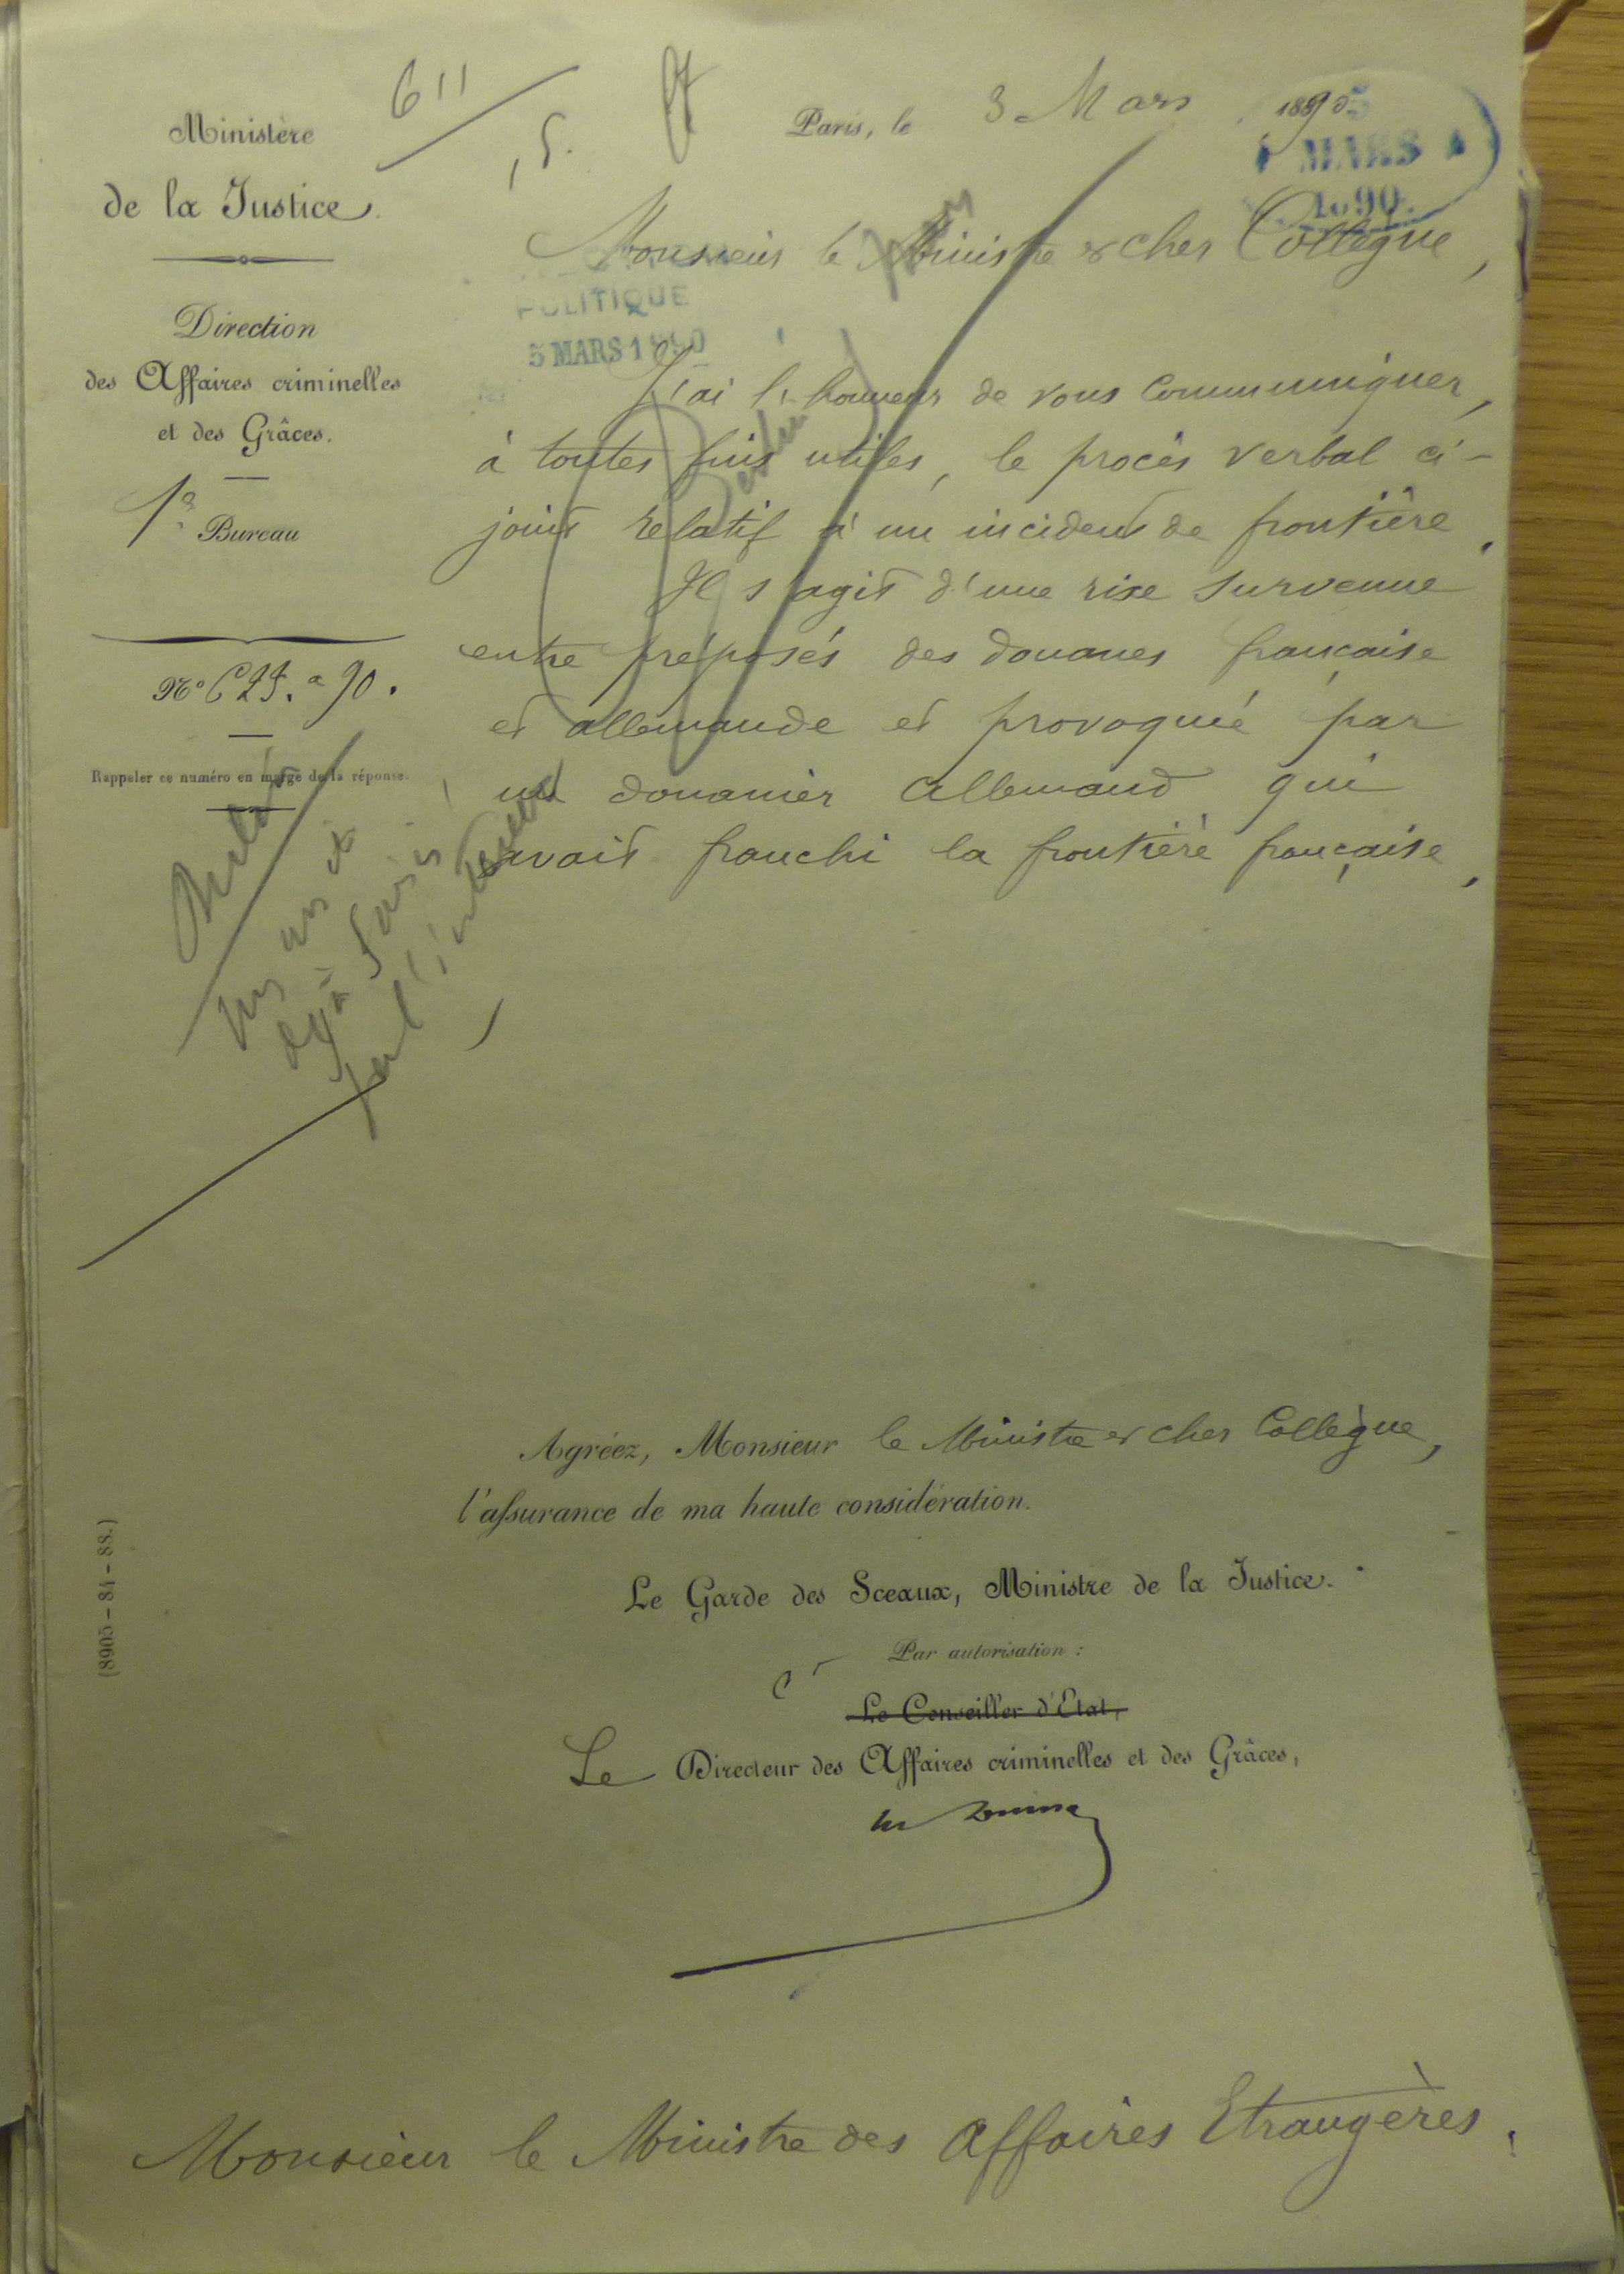 611
Ministère
de la Justice.
Direction
des Affaires criminelles
et des Grâces.
1er Bureau
No 625. a 90.
Rappeler ce numéro en marge de la réponse.
Paris, le 3 Mars 1890
MARS
1890
POLITIQUE
5 MARS 1890
Monsieur le Ministre et cher Collègue,
J'ai l'honneur de vous communiquer,
à toutes fins utiles, le procès verbal ci-
joint relatif à un incident de frontière.
Il s'agit d'une rixe survenue
entre préposés des douanes française
et allemande et provoquée par
un douanier allemand qui
avait franchi la frontière française.
déjà saisis
par l'intérieur
Agréez, Monsieur le Ministre et cher Collègue,
l'assurance de ma haute considération.
Le Garde des Sceaux, Ministre de la Justice.
Par autorisation :
Le Conseiller d'Etat,
Le Directeur des Affaires criminelles et des Grâces,
(8905-84-88.)
Monsieur le Ministre des Affaires Etrangères.